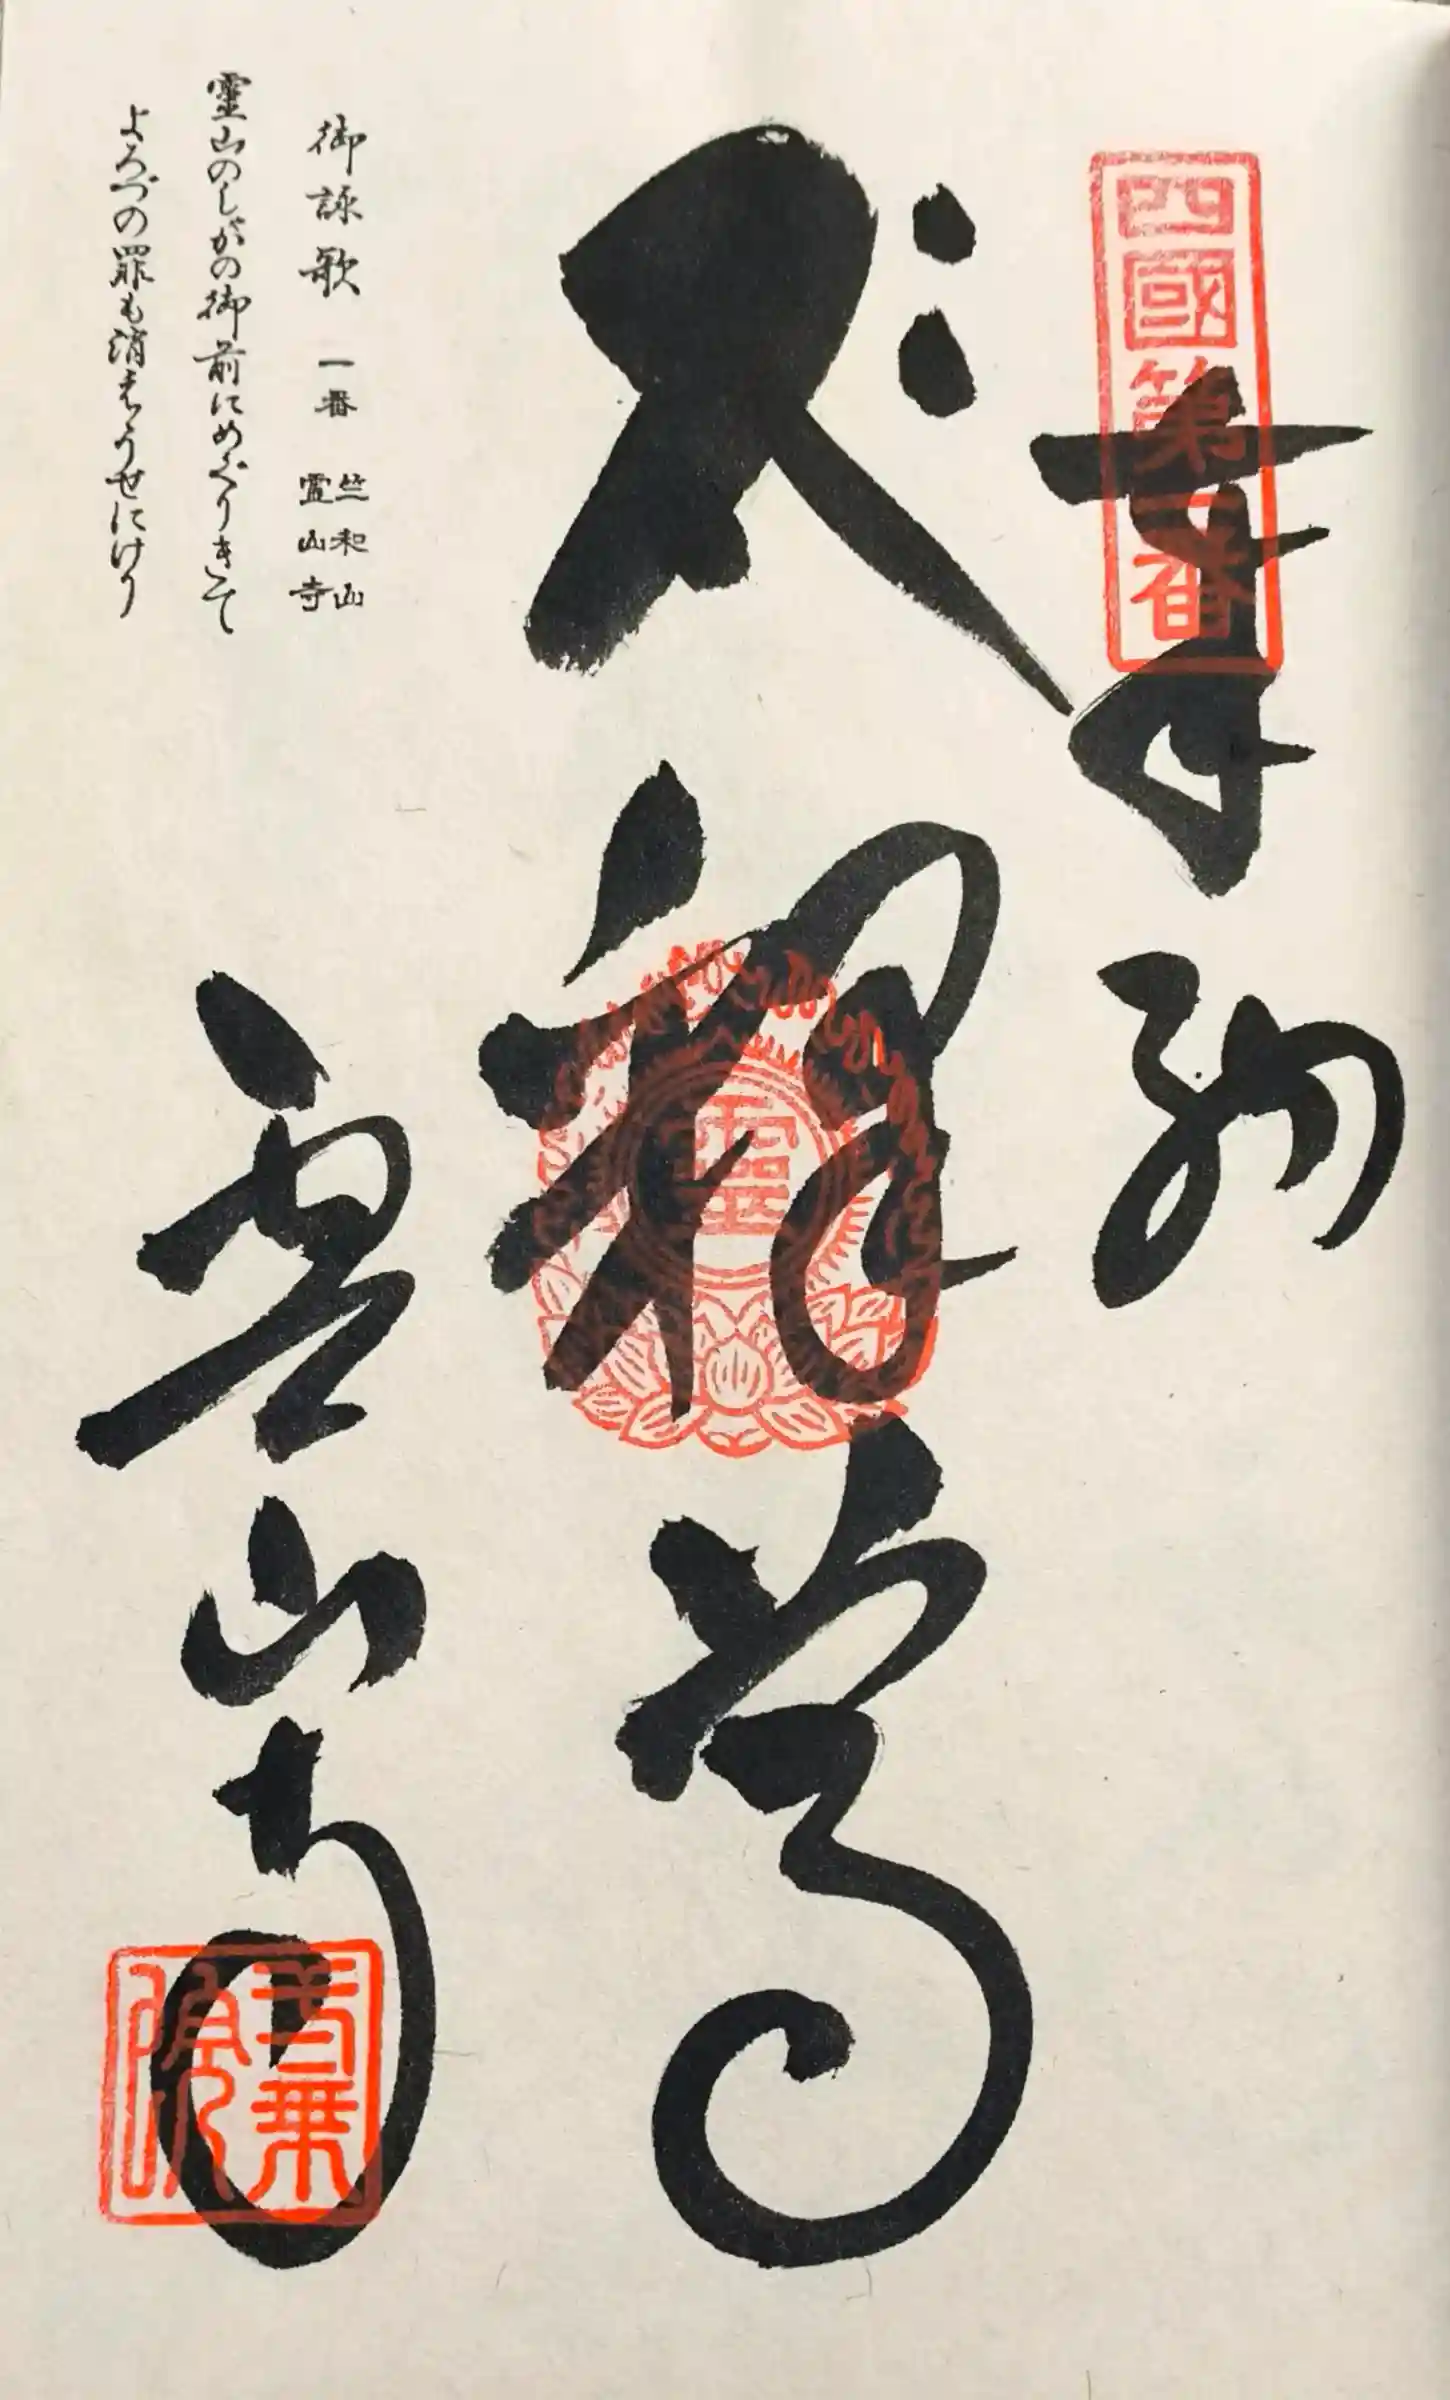 四國第一番
奉納
釋尊
靈
霊山寺
一乗院
御詠歌 一番 竺和山 霊山寺
霊山のしゃかの御前にめぐりきて
よろづの罪も消えうせにけり